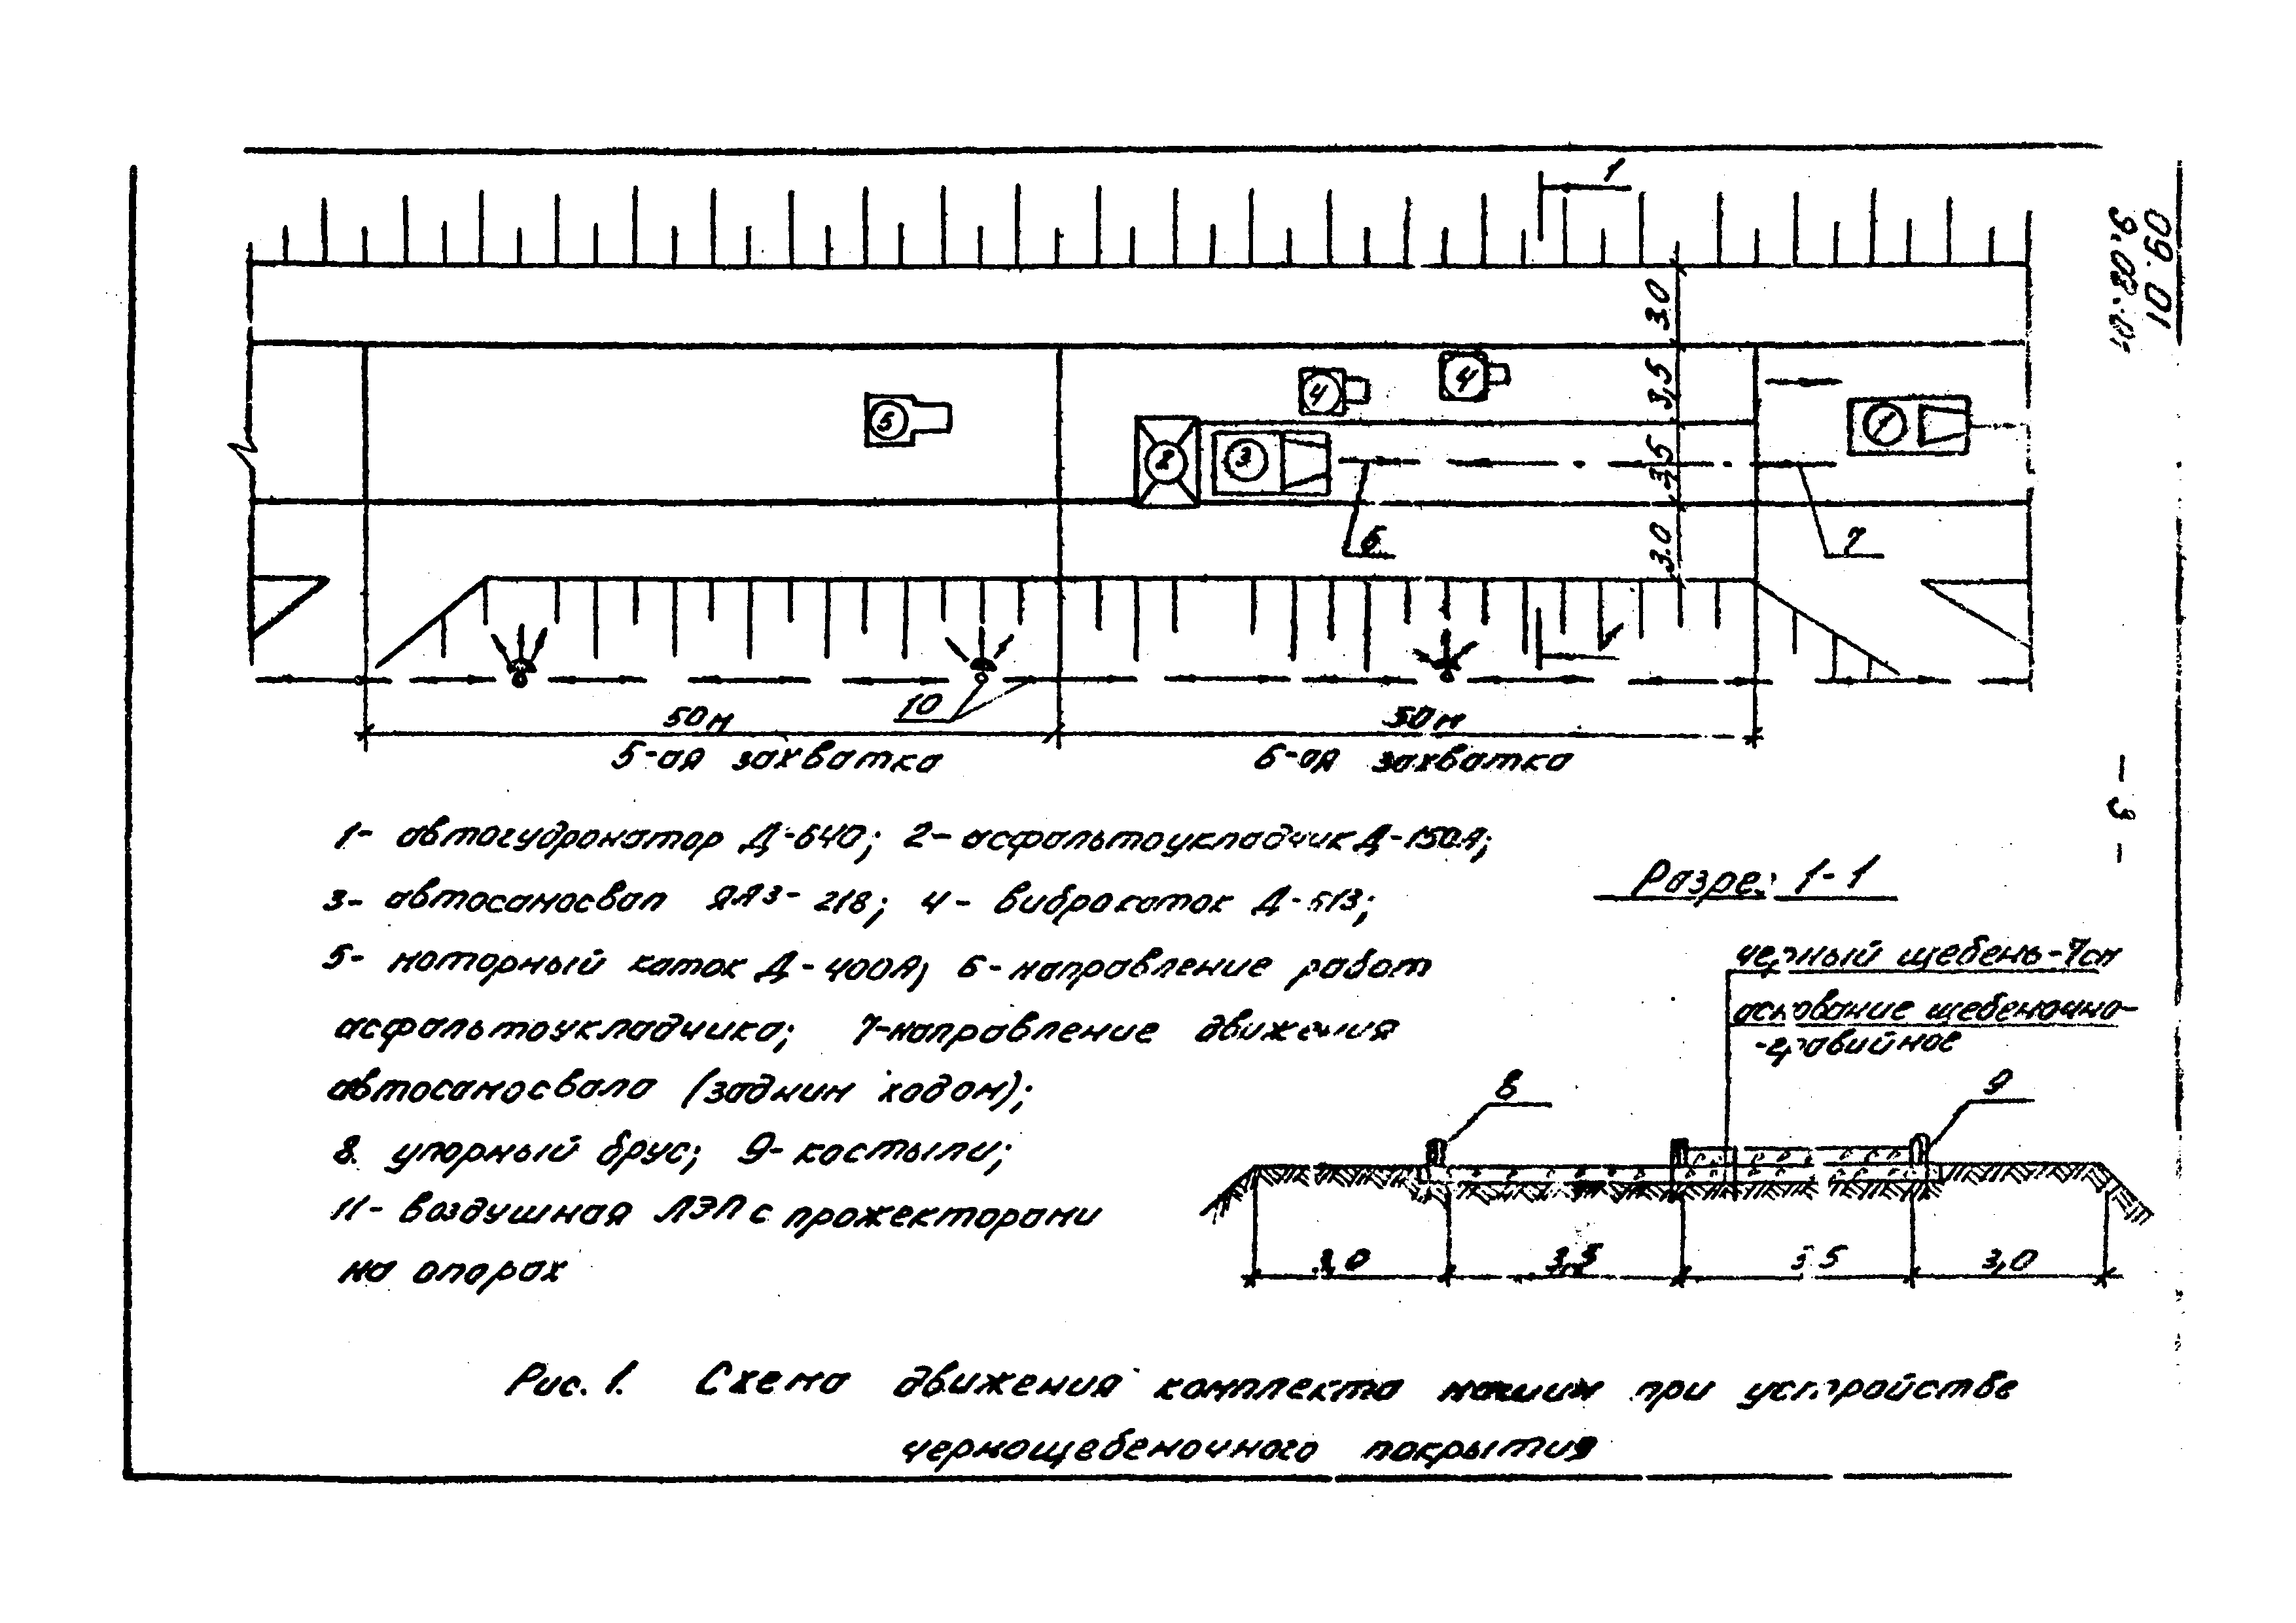 1
09.01
9.02.01
3.0
3,5
3,5
3.0
4
4
5
2
3
1
6
7
10
50м
50м
5-ая захватка
6-ая захватка
- 3 -
1- автогудронатор Д-640; 2- асфальтоукладчик Д-150А;
3- автосамосвал ЯАЗ- 218; 4- виброкаток Д-613;
5- моторный каток Д-400А; 6- направление работ
асфальтоукладчика; 7- направление движения
автосамосвала (задним ходом);
8. упорный брус; 9- костыли;
11- воздушная ЛЭП с прожекторами
на опорах
Разрез 1-1
черный щебень-7см
основание щебеночно-
-гравийное
8
9
3,0
3,5
3,5
3,0
Рис. 1. Схема движения комплекта машин при устройстве
чернощебеночного покрытия